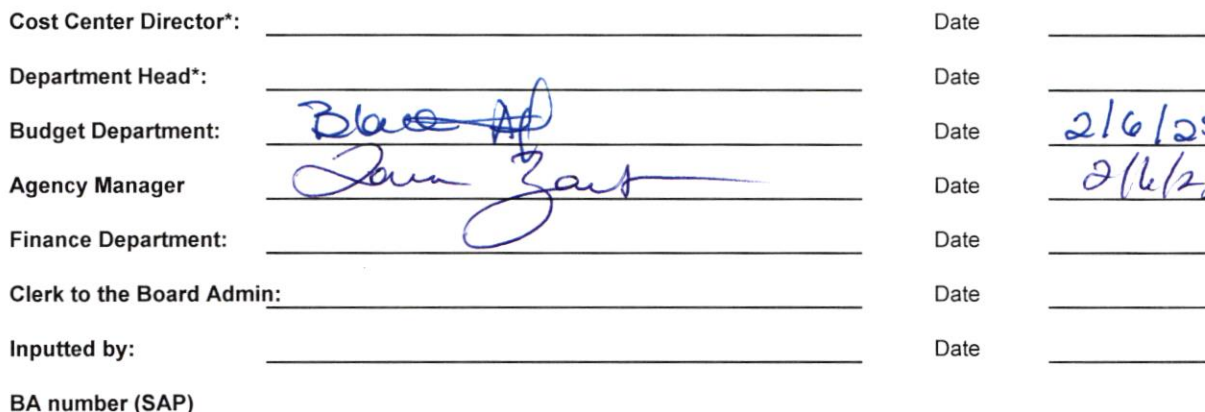 Cost Center Director*: Date
Department Head*: Date
Budget Department: Date 2/6/2
Agency Manager Date 2/6/2
Finance Department: Date
Clerk to the Board Admin: Date
Inputted by: Date
BA number (SAP)